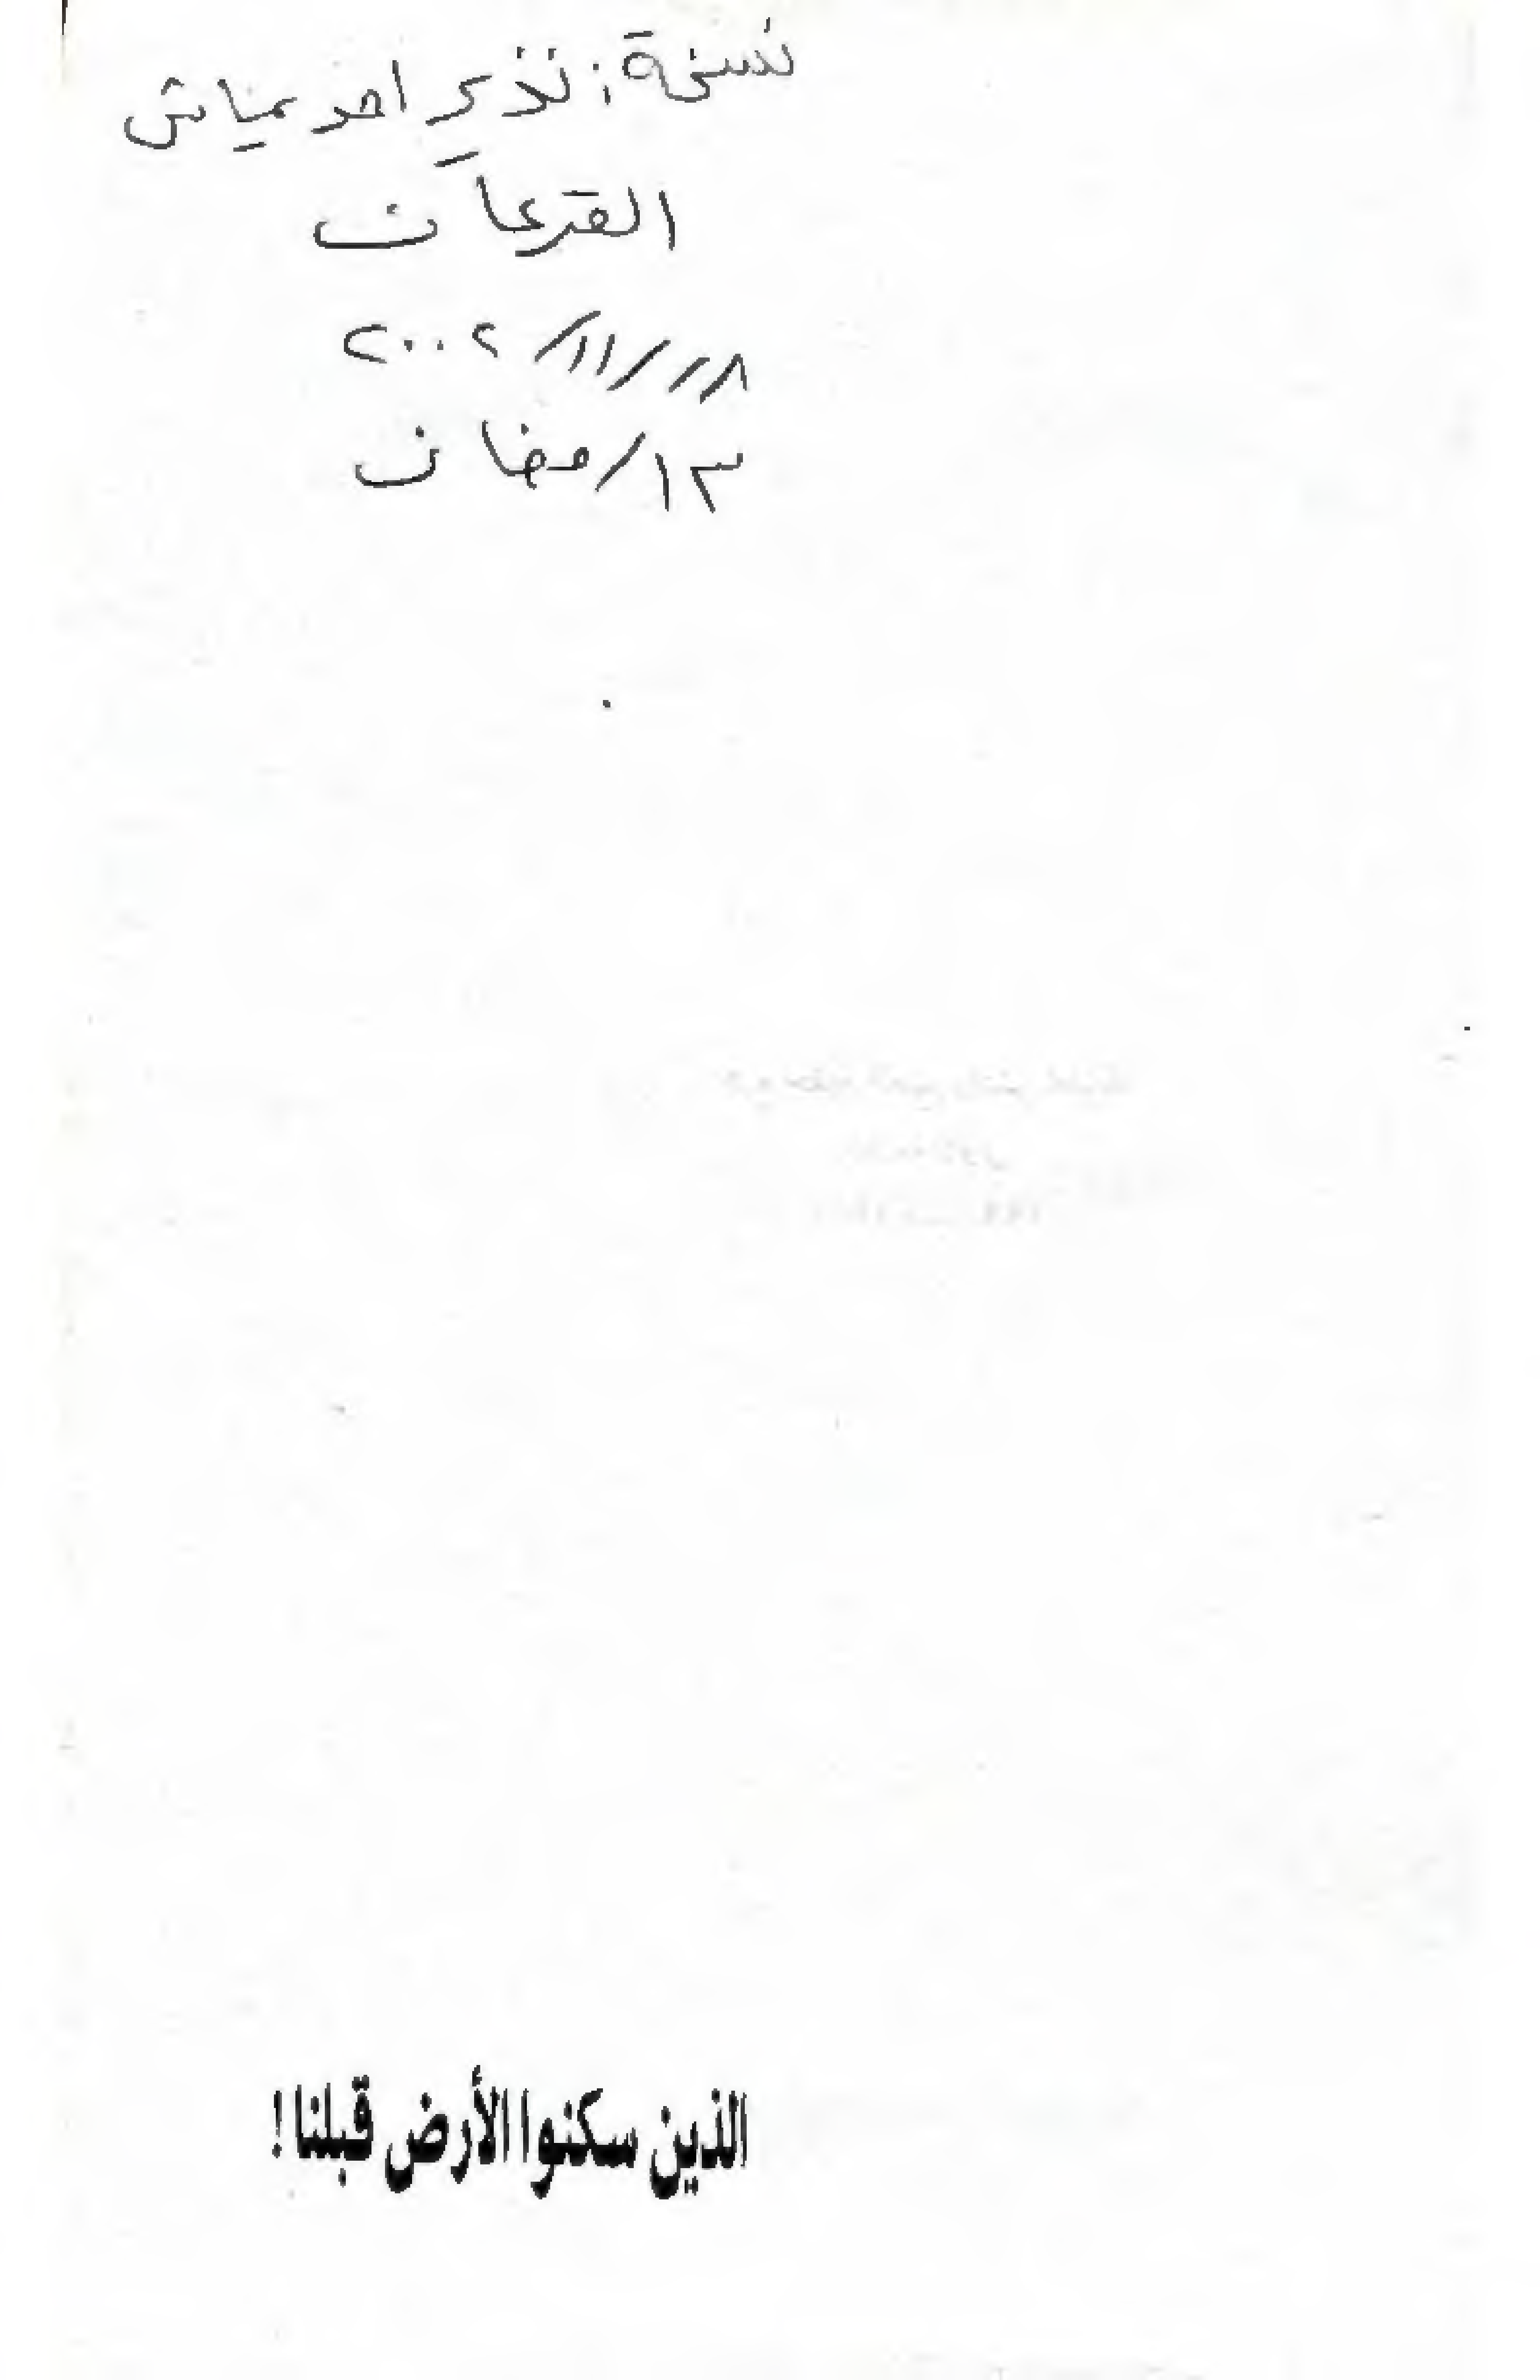 نسخة: نذير احمد عياش
القرعان
١٨/١١/٢٠٠٢
١٣/رمضان
الذين سكنوا الأرض قبلنا!